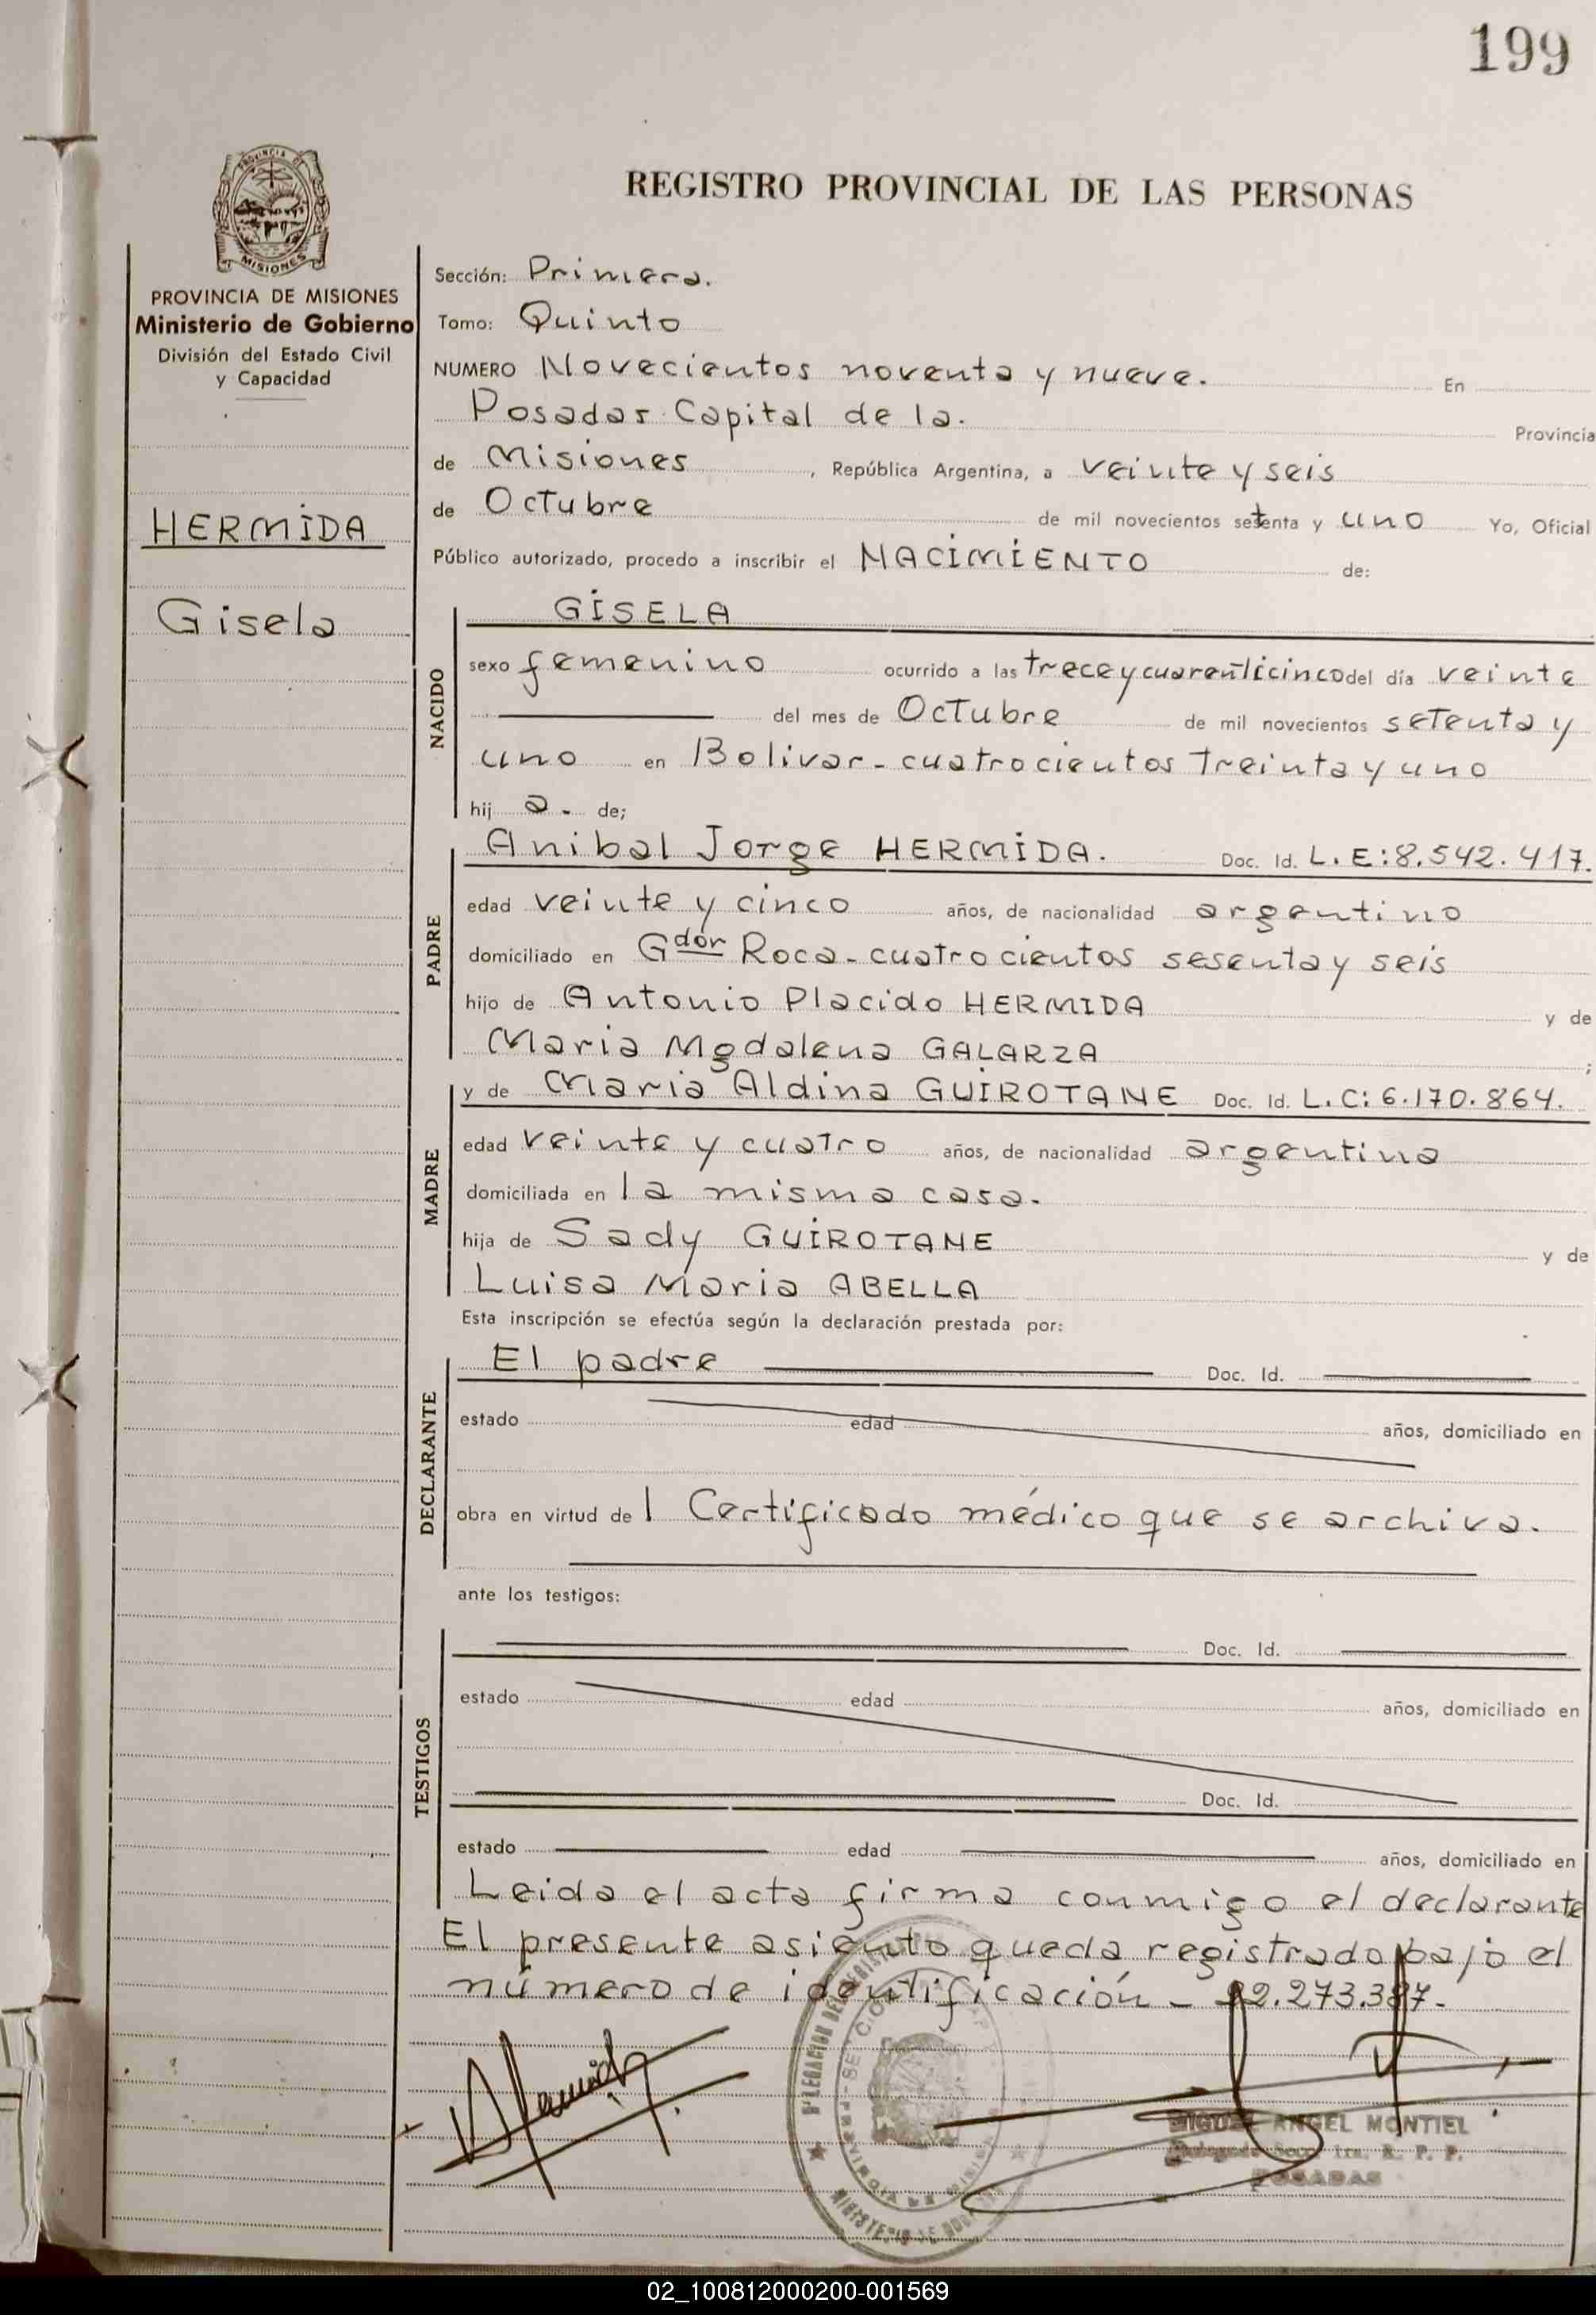 199
PROVINCIA DE
MISIONES
REGISTRO PROVINCIAL DE LAS PERSONAS
PROVINCIA DE MISIONES
Ministerio de Gobierno
División del Estado Civil
y Capacidad
HERMIDA
Gisela
Sección: Primera.
Tomo: Quinto
NUMERO Novecientos noventa y nueve. En
Posadas Capital de la. Provincia
de Misiones, República Argentina, a veinte y seis
de Octubre de mil novecientos setenta y uno Yo, Oficial
Público autorizado, procedo a inscribir el NACIMIENTO de:
NACIDO
GISELA
sexo femenino ocurrido a las trece y cuarenticinco del día veinte
del mes de Octubre de mil novecientos setenta y
uno en Bolivar - cuatrocientos treinta y uno
hij a. de;
PADRE
Anibal Jorge HERMIDA. Doc. Id. L.E: 8.542.417.
edad veinte y cinco años, de nacionalidad argentino
domiciliado en Gdor Roca - cuatrocientos sesenta y seis
hijo de Antonio Placido HERMIDA y de
Maria Mgdalena GALARZA ;
MADRE
y de Maria Aldina GUIROTANE Doc. Id. L.C: 6.170.864.
edad veinte y cuatro años, de nacionalidad argentina
domiciliada en la misma casa.
hija de Sady GUIROTANE y de
Luisa Maria ABELLA
Esta inscripción se efectúa según la declaración prestada por:
DECLARANTE
El padre Doc. Id.
estado edad años, domiciliado en
obra en virtud de l Certificado médico que se archiva.
ante los testigos:
TESTIGOS
Doc. Id.
estado edad años, domiciliado en
Doc. Id.
estado edad años, domiciliado en
Leida el acta firma conmigo el declarante
El presente asiento queda registrado bajo el
número de identificación - 22.273.387.
MIGUEL ANGEL MONTIEL
Delegado Secc. 1ra. R. P. P.
POSADAS
02_100812000200-001569